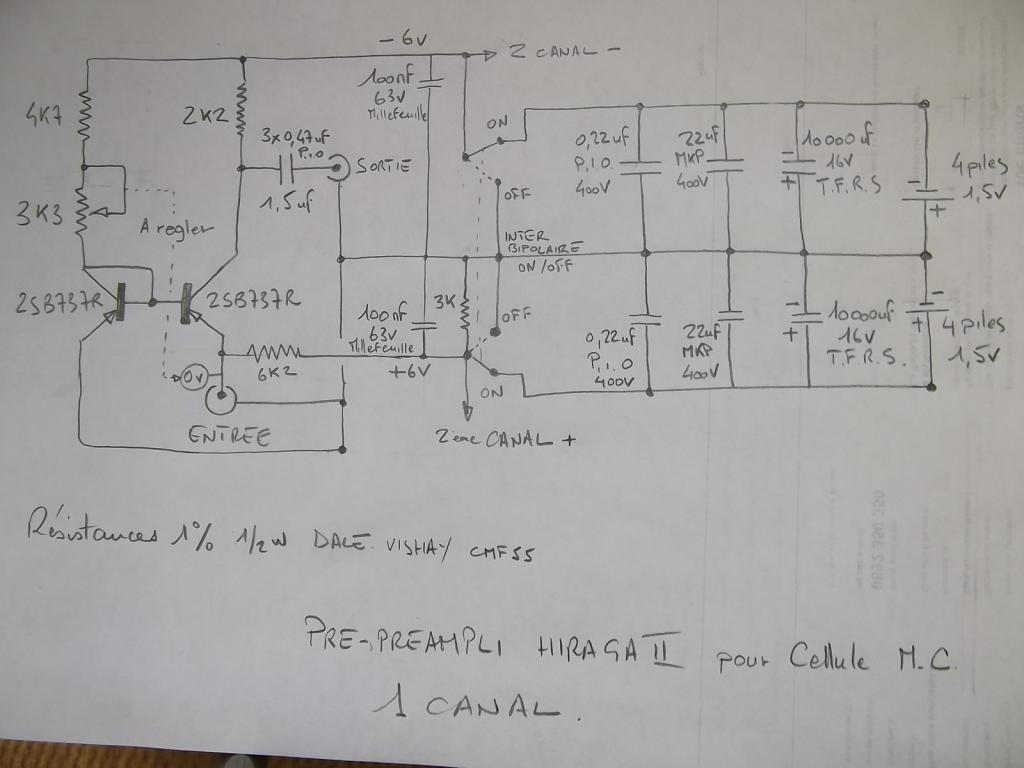 - 6V
2 CANAL -
4K7
2K2
100nF
63V
Millefeuille
3x0,47uF
P.I.O
1,5uf
SORTIE
ON
OFF
0,22uf
P.I.O.
400V
22uf
MKP
400V
10000uf
16V
T.F.R.S
4 piles
1,5V
3K3
A regler
INTER
BIPOLAIRE
ON/OFF
2SB737R
2SB737R
3K
OFF
100nF
63V
Millefeuille
+6V
0,22uf
P.I.O
400V
22uf
MKP
400V
10000uf
16V
T.F.R.S.
4 piles
1,5V
6K2
0V
ON
ENTREE
2ème CANAL +
Résistances 1% 1/2W DALE. VISHAY CMF55
PRE-PREAMPLI HIRAGA II pour Cellule M.C.
1 CANAL.